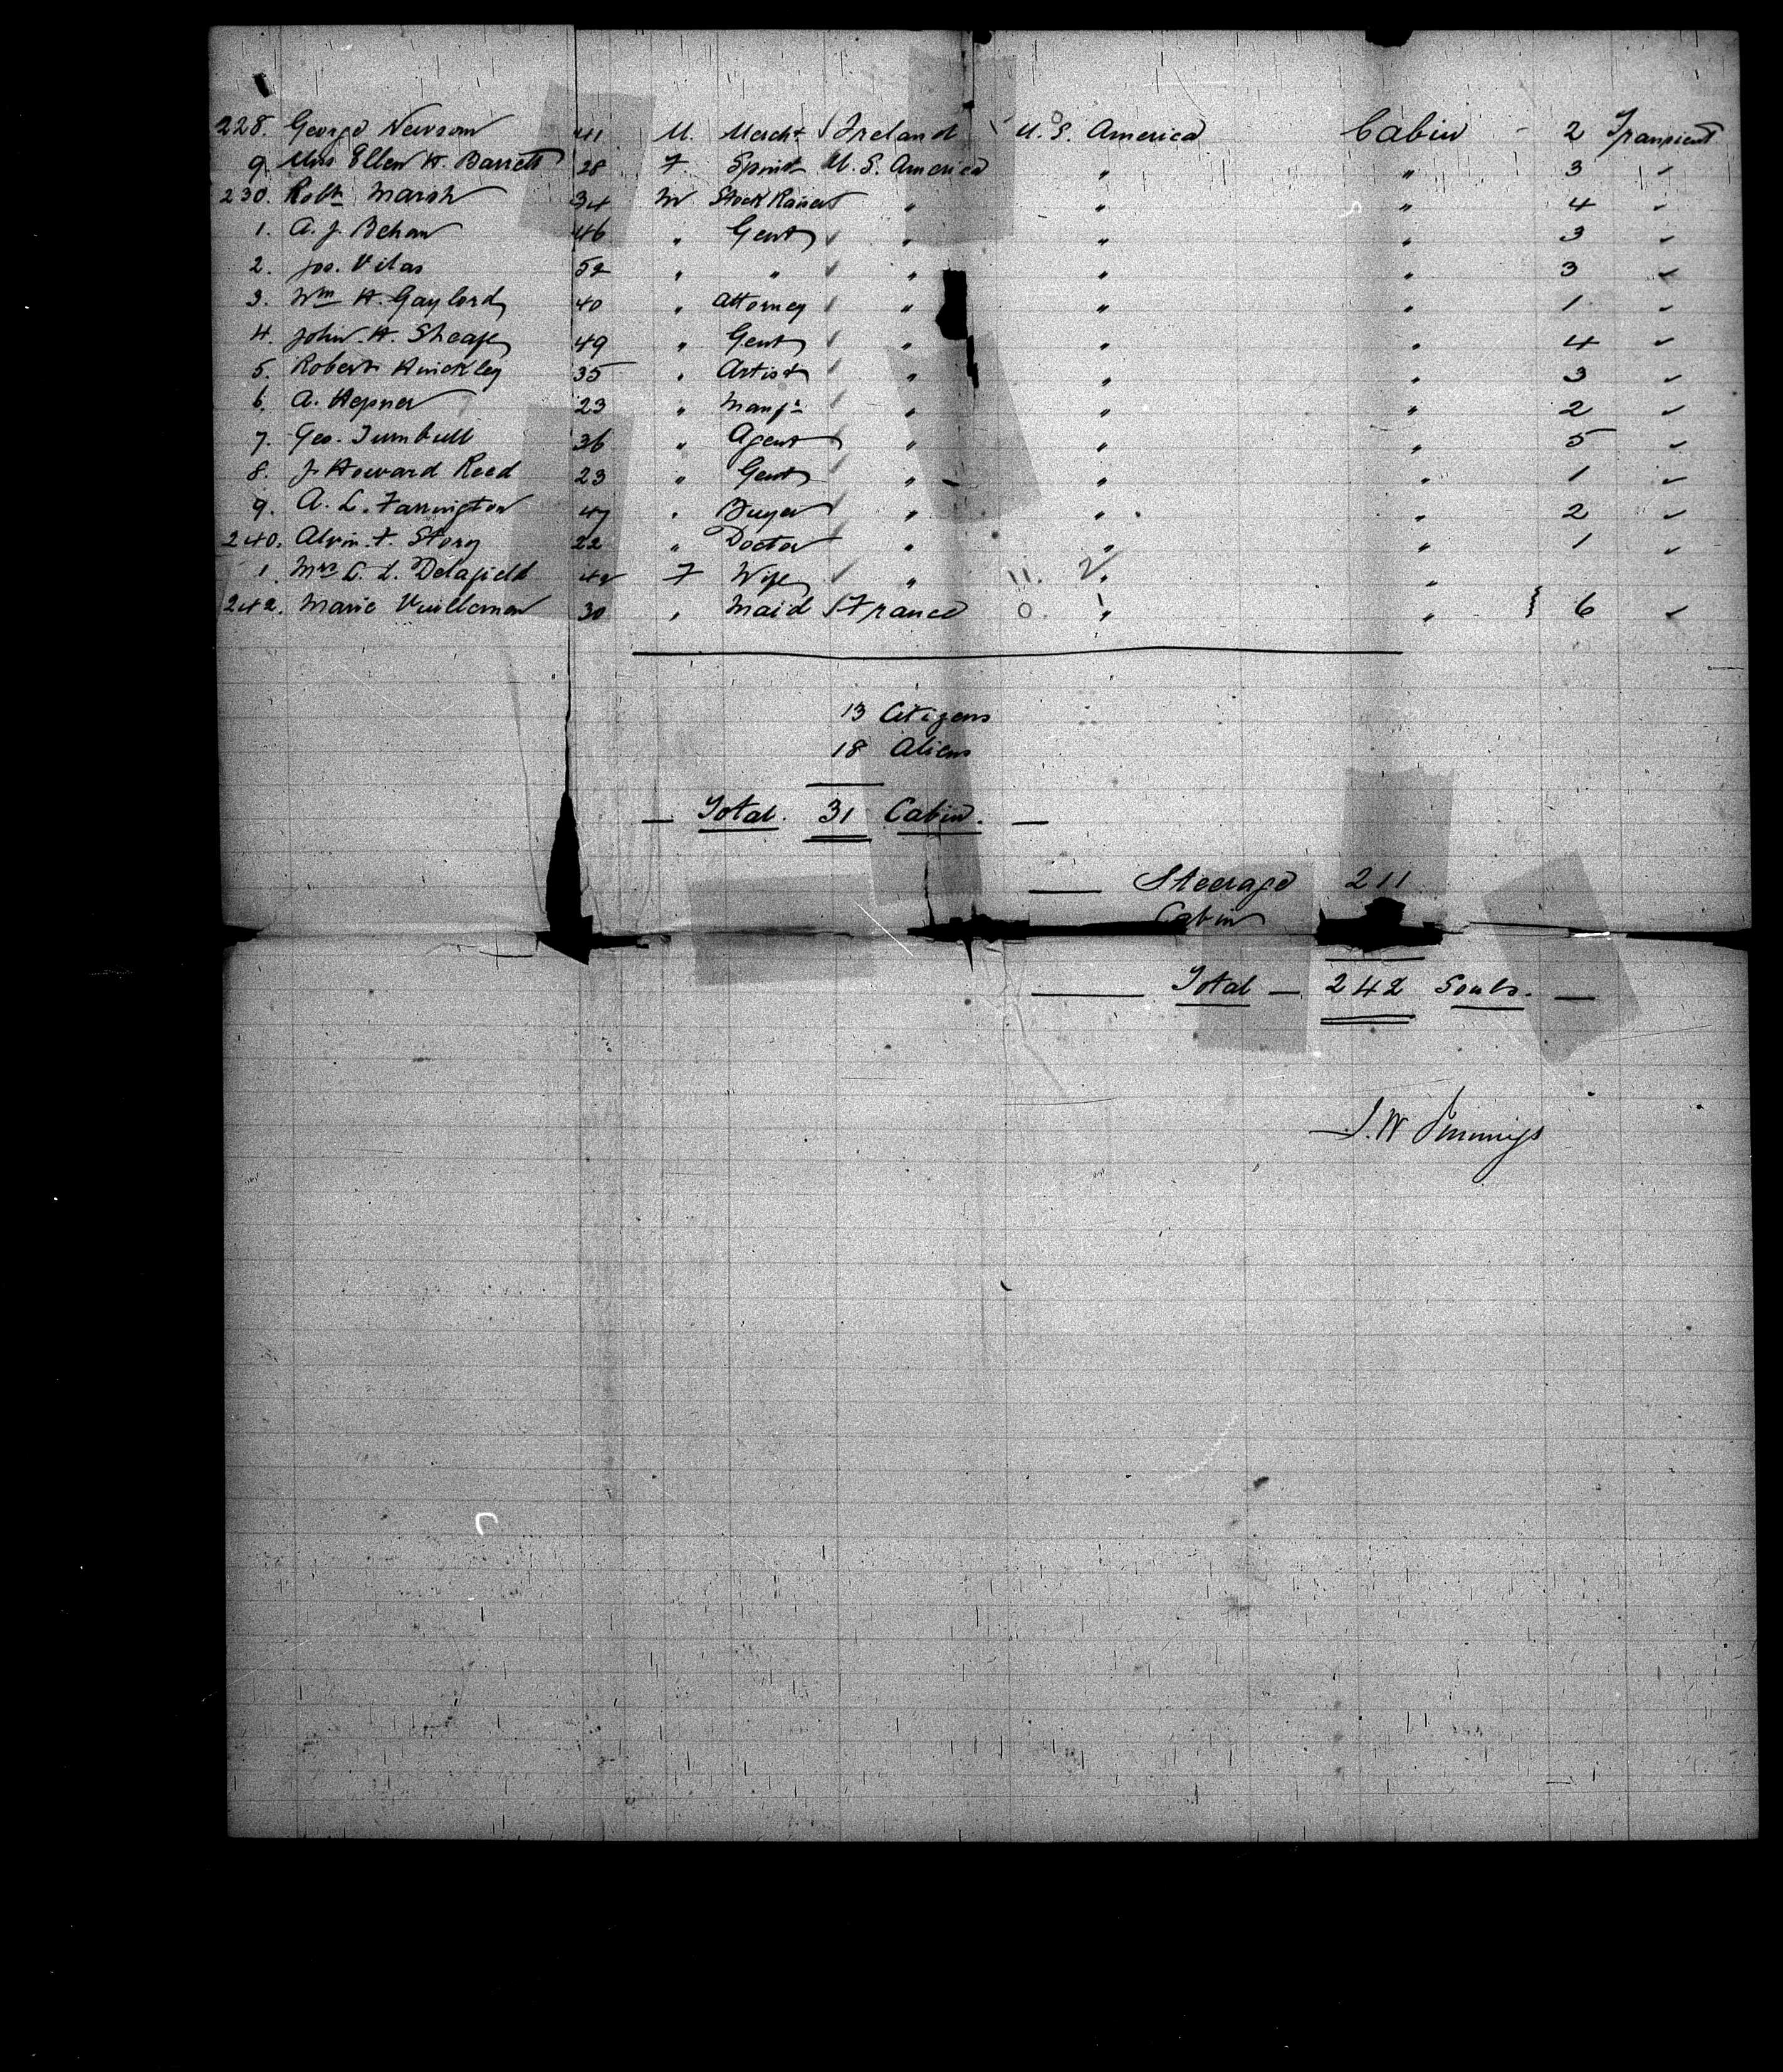 228. George Newsom 41 M. Mercht Ireland U.S. America Cabin - 2 Transient
9. Miss Ellen H. Barrett 28 F. Spinst U.S. America " " 3 "
230. Robt Marsh 34 M Stock Raiser " " " 4 "
1. A. J. Behan 46 " Gent " " " 3 "
2. Jos. Vilas 52 " " " " " 3 "
3. Wm H. Gaylord 40 " Attorney " " " 1 "
4. John. H. Sheafe 49 " Gent " " " 4 "
5. Robert Hinckley 35 " Artist " " " 3 "
6. A. Hepner 23 " Manfr " " " 2 "
7. Geo. Turnbull 36 " Agent " " " 5 "
8. J Howard Reed 23 " Gent " " " 1 "
9. A. L. Farrington 47 " Buyer " " " 2 "
240. Alvin. F. Story 22 " Doctor " " " 1 "
1. Mrs C. L. Delafield 42 F Wife " " "
242. Marie Vuilleman 30 " Maid France " " 6 "
13 Citizens
18 Aliens
Total. 31 Cabin.
Steerage 211
Cabin
Total - 242 Souls.
J. W Jennings